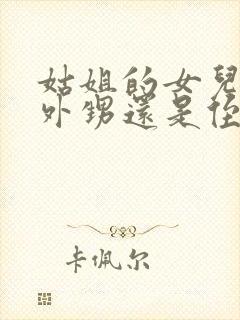 姑姐的女兒
外甥還是侄
卡佩尔